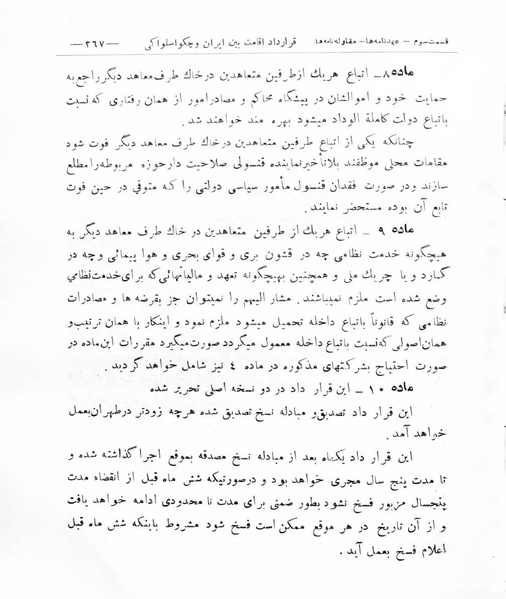 قسمت سوم - عهدنامه‌ها - مقاوله‌نامه‌ها قرارداد اقامت بین ایران و چکواسلواکی —۲۶۷—
ماده ۸ـ اتباع هر یك از طرفین متعاهدین در خاك طرف معاهد دیگر راجع به
حمایت خود و اموالشان در پیشگاه محاکم و مصادر امور از همان رفتاری که نسبت
باتباع دولت کاملة الوداد میشود بهره مند خواهند شد .
چنانکه یکی از اتباع طرفین متعاهدین در خاك طرف معاهد دیگر فوت شود
مقامات محلی موظفند بلاتأخیر نماینده قنسولی صلاحیت دار حوزه مربوطه را مطلع
سازند و در صورت فقدان قنسول مأمور سیاسی دولتی را که متوفی در حین فوت
تابع آن بوده مستحضر نمایند .
ماده ۹ ـ اتباع هر یك از طرفین متعاهدین در خاك طرف معاهد دیگر به
هیچگونه خدمت نظامی چه در قشون بری و قوای بحری و هوا پیمائی و چه در
گارد و یا چریك ملی و همچنین بهیچگونه تعهد و مالیاتهائی که برای خدمت نظامی
وضع شده است ملزم نمیباشند . مشار الیهم را نمیتوان جز بقرضه ها و مصادرات
نظامی که قانوناً باتباع داخله تحمیل میشود ملزم نمود و اینکار با همان ترتیب و
همان اصولی که نسبت باتباع داخله معمول میگردد صورت میگیرد مقررات این ماده در
صورت احتیاج بشرکتهای مذکوره در ماده ٤ نیز شامل خواهد گردید .
ماده ۱۰ ـ این قرار داد در دو نسخه اصلی تحریر شده
این قرار داد تصدیق و مبادله نسخ تصدیق شده هر چه زودتر در طهران بعمل
خواهد آمد .
این قرار داد یکماه بعد از مبادله نسخ مصدقه بموقع اجرا گذاشته شده و
تا مدت پنج سال مجری خواهد بود و در صورتیکه شش ماه قبل از انقضاء مدت
پنجسال مزبور فسخ نشود بطور ضمنی برای مدت نا محدودی ادامه خواهد یافت
و از آن تاریخ در هر موقع ممکن است فسخ شود مشروط باینکه شش ماه قبل
اعلام فسخ بعمل آید .